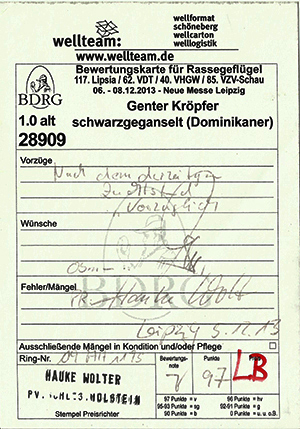 wellteam:
wellformat
schöneberg
wellcarton
welllogistik
www.wellteam.de
Bewertungskarte für Rassegeflügel
117. Lipsia / 62. VDT / 40. VHGW / 85. VZV-Schau
06. - 08.12.2013 - Neue Messe Leipzig
BDRG
Genter Kröpfer
1.0 alt
schwarzgeganselt (Dominikaner)
28909
Vorzüge
Nach dem derzeitigen
Zuchtstand
Vorzüglich
Wünsche
BDRG
Fehler/Mängel
Hauke Wolter
Leipzig 5.12.13
Ausschließende Mängel in Kondition und/oder Pflege
Ring-Nr.
HAUKE WOLTER
PV. SCHLES. HOLSTEIN
Stempel Preisrichter
Bewertungs-
note
v
Punkte
97
Punkte
LB
97 Punkte = v
96 Punkte = hv
95-93 Punkte = sg
92-91 Punkte = g
90 Punkte = b
0 Punkte = u. o.B.